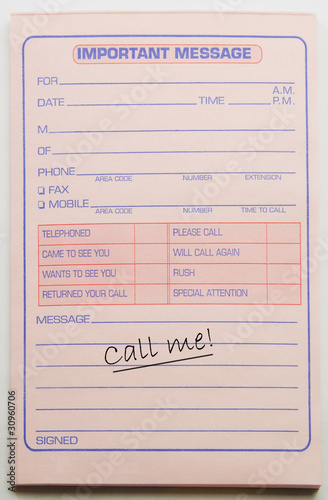 IMPORTANT MESSAGE
FOR
A.M.
DATE TIME P.M.
M
OF
PHONE
AREA CODE NUMBER EXTENSION
FAX
MOBILE
AREA CODE NUMBER TIME TO CALL
TELEPHONED PLEASE CALL
CAME TO SEE YOU WILL CALL AGAIN
WANTS TO SEE YOU RUSH
RETURNED YOUR CALL SPECIAL ATTENTION
MESSAGE
call me!
SIGNED
Adobe Stock | #30960706